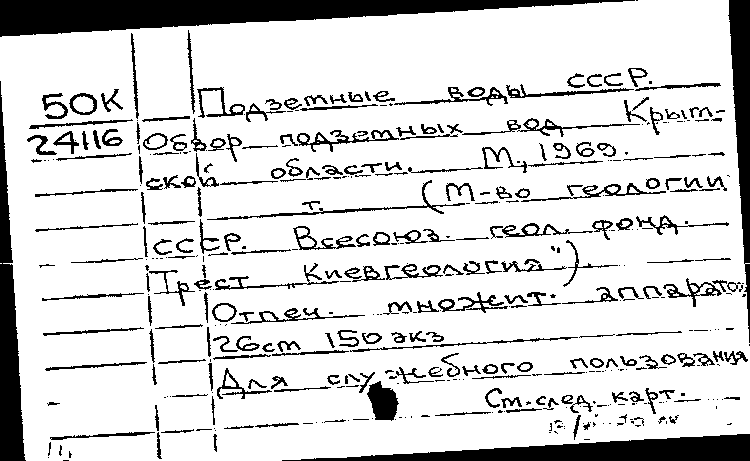 50К
24116
Подземные воды СССР.
Обзор подземных вод Крым-
ской области. М., 1969.
т. (М-во геологии
СССР. Всесоюз. геол. фонд.
Трест „Киевгеология").
Отпеч. множит. аппаратом
26см 150 экз
Для служебного пользования
См. след. карт.